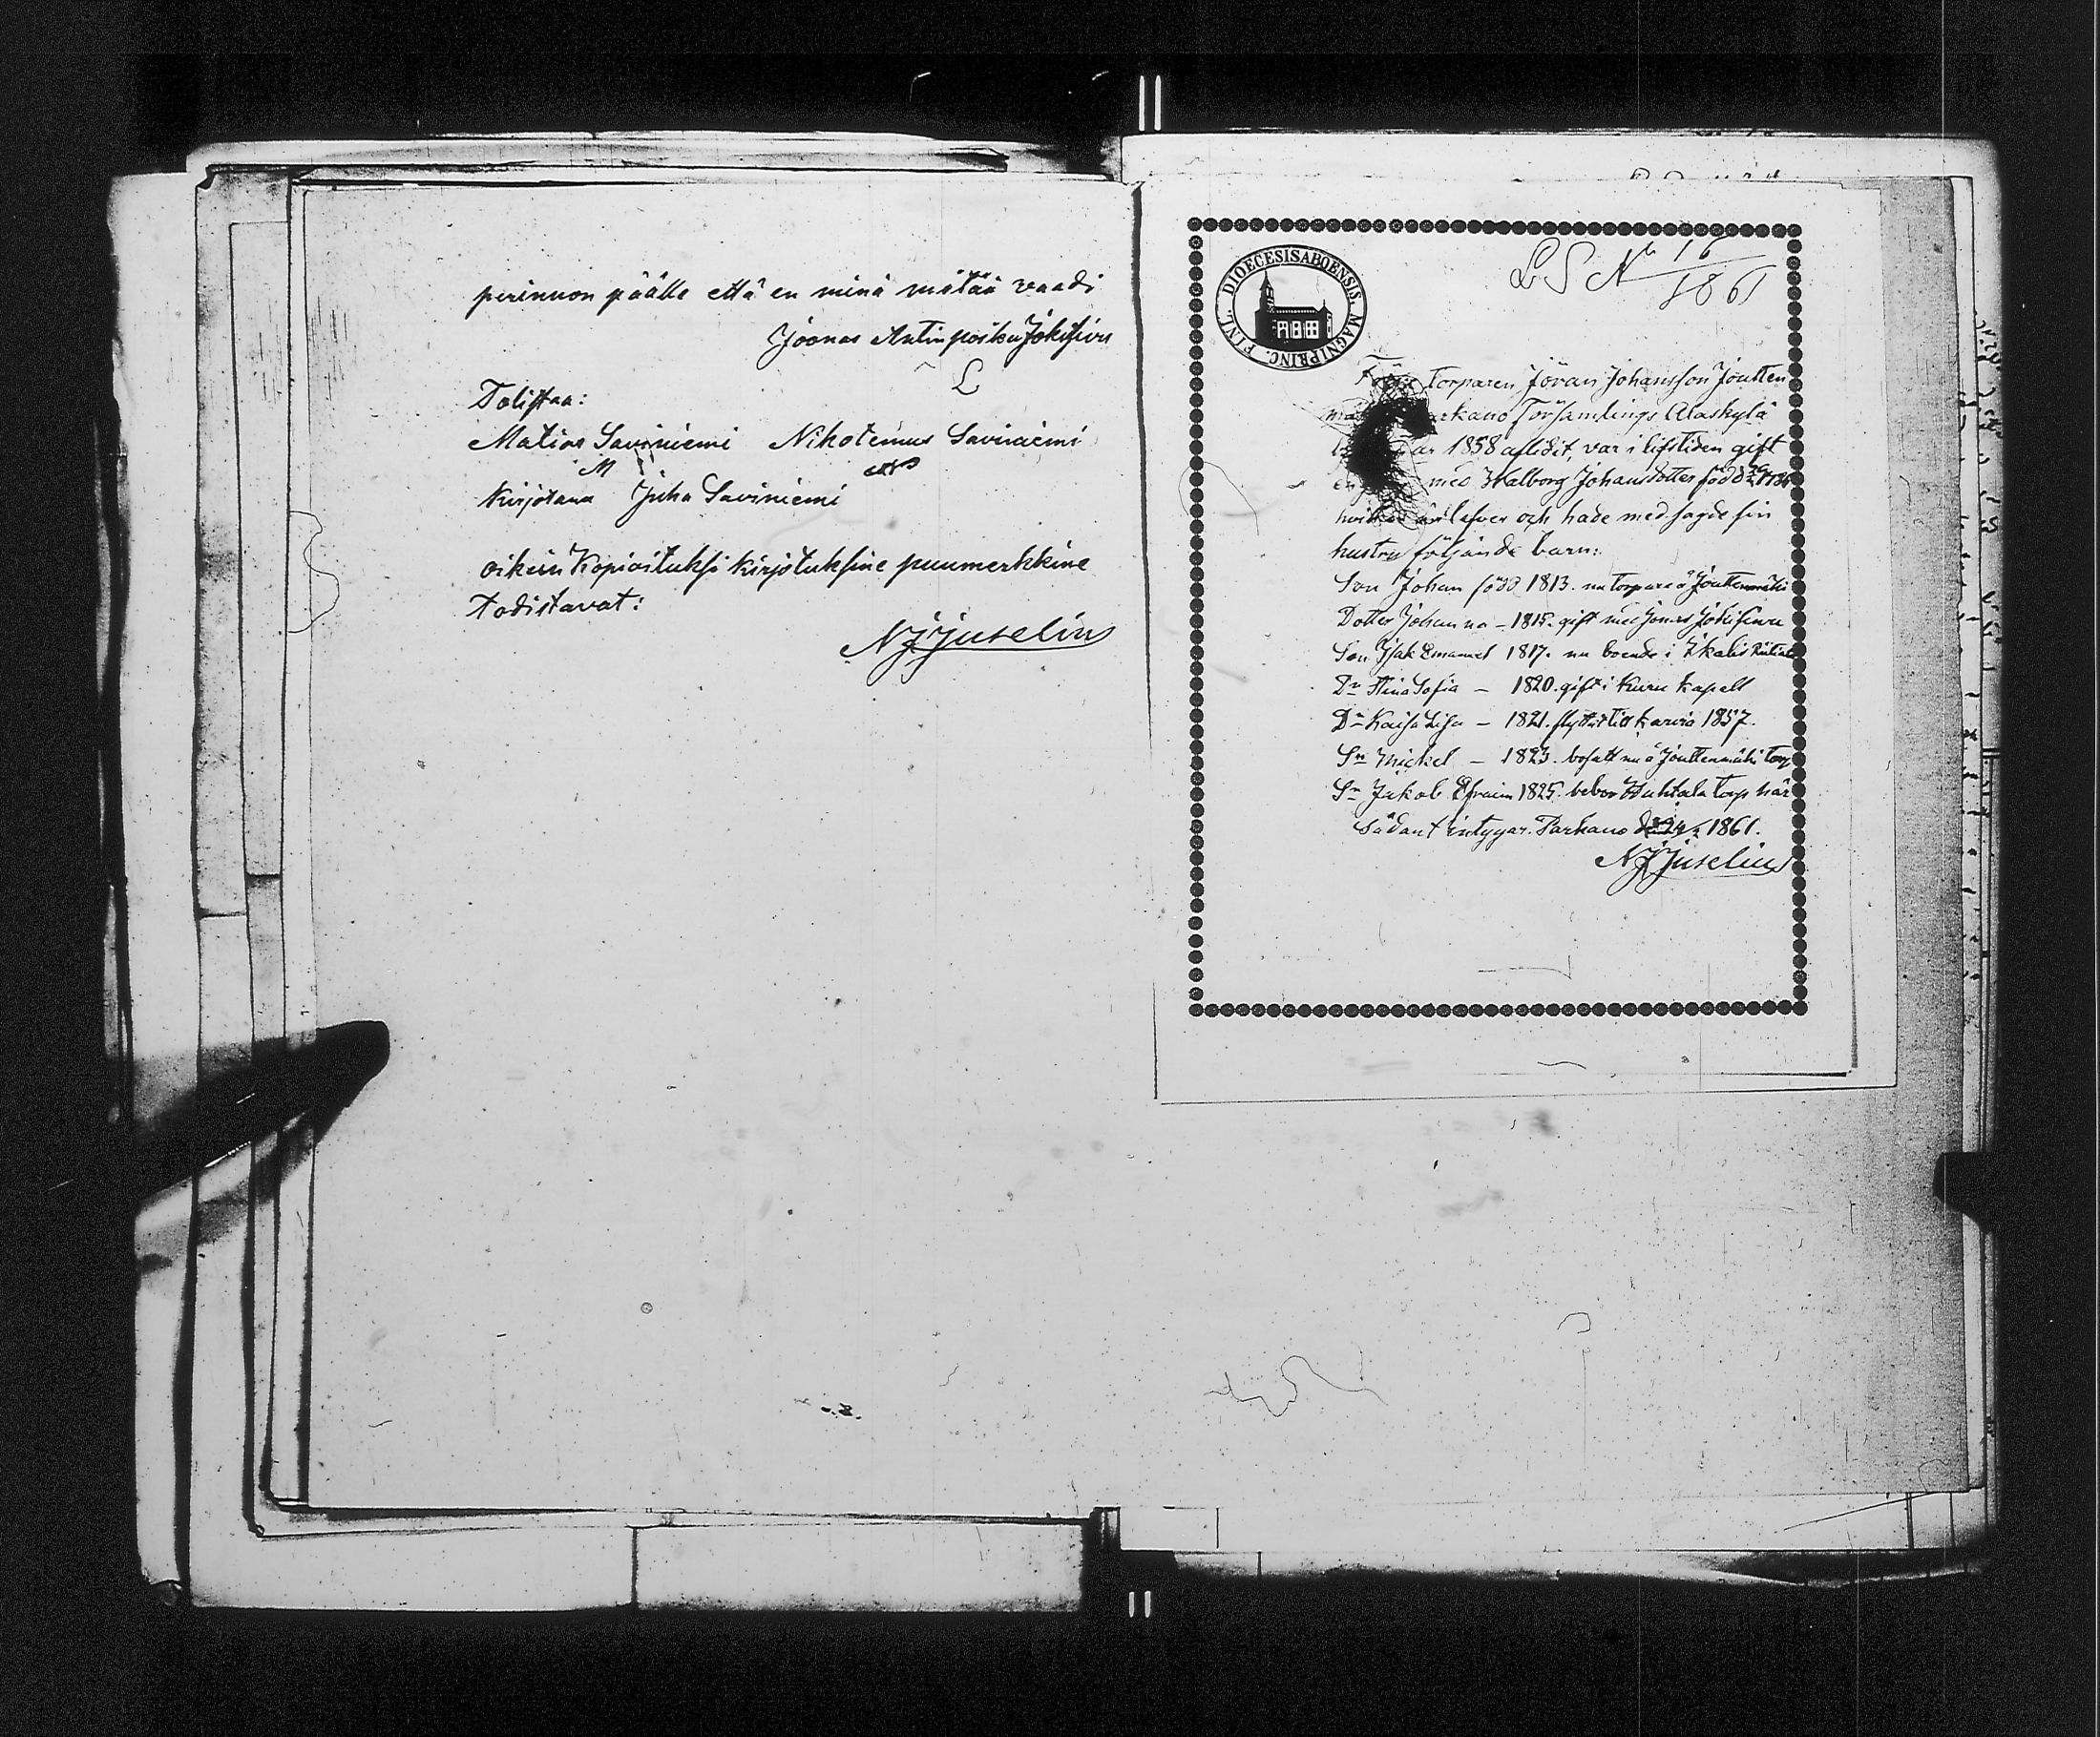 perinnon päälle että en minä mitää vaadi
Joonas Antinpoika Jokisivu
L
Tolistaa:
Matias Saviniemi Nikotemus Saviniemi
M
Kirjotana Juha Saviniemi
oikein Kopioituksi kirjotuksine puumerkkine
todistavat:
NJJuselius
LS No 16
1861
DIOECESIS ABOENSIS, MAGNI PRINC. FINL.
Torparen Jöran Johansson Joutten
rkano Församlings Alaskylä
år 1858 aflidit, var i lifstiden gift
med Walborg Johansdotter född
lefver och hade med sagde sin
hustru följande barn:
Son Johan född 1813. nu torpare å Jouttenmäki
Dotter Johanna – 1815. gift med Jonas Jokisivu
Son Isak Emanuel 1817. nu boende i Ikalis
Dr Stina Sofia – 1820. gift i Kuru kapell
Dr Kaisa Lisa – 1821. flyttat till Karvia 1857.
Sn Mickel – 1823. bosatt nu å Jouttenmäki torp
Sn Jakob Efraim 1825. bebor Huhtala torp här
Sådant intygar. Parkano d 1861.
NJJuselius